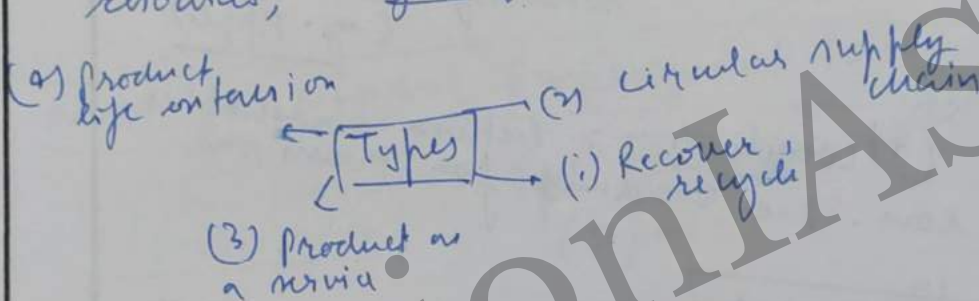 (4) Product
life extension
(2) circular supply
chain
Types
(i) Recover,
recycle
(3) Product as
a service
onIAS